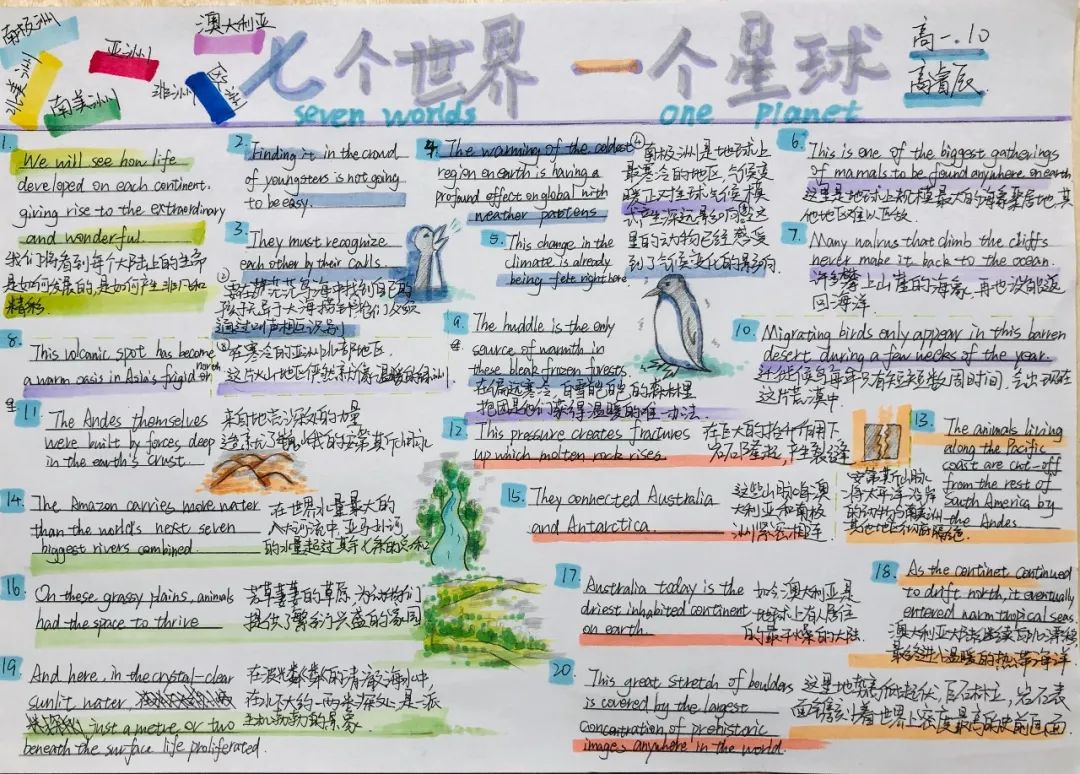 南极洲
澳大利亚
亚洲
北美洲
非洲
欧洲
南美洲
七个世界 一个星球
seven worlds one planet
高一.10
高睿辰
1.
We will see how life
developed on each continent.
giving rise to the extraordinary
and wonderful.
我们将看到每个大陆上的生命
是如何发展的,是如何产生非凡和
精彩.
2.
Finding it in the crowd
of youngsters is not going
to be easy.
3.
They must recognize
each other by their calls
②
要在茫茫鸟海中找到自己的
孩子无异于大海捞针,它们必须
通过叫声相互识别
4.
The warming of the coldest
region on earth is having a
profound effect on global with
weather pattens
④
南极洲是地球上
最寒冷的地区,气候变
暖正对全球气候模
式产生深远影响,而这
里的动物已经感受
到了气候变化的影响.
5.
This change in the
climate is already
being felt right here.
6.
This is one of the biggest gatherings
of mamals to be found anywhere on earth
这里是地球上规模最大的海象聚居地,其
他地区难以匹敌.
7.
Many walrus that climb the cliffs
never make it back to the ocean.
许多攀上山崖的海象,再也没能返
回海洋
8.
This volcanic spot has become
a warm oasis in Asia's frigid north
③
在寒冷的亚洲北部地区,
这片火山地区俨然
温暖的绿洲
9.
The huddle is the only
source of warmth in
these bleak frozen forests
在偏远寒冷 白雪皑皑的森林里
抱团是他们获得温暖的唯一办法.
10.
Migrating birds only appear in this barren
desert during a few weeks of the year.
迁徙候鸟每年只有短短数周时间,会出现在
这片荒漠中.
11
The Andes themselves
were built by forces, deep
in the earth's crust.
来自地壳深处的力量
造就了巍峨的安第斯山脉
12
This pressure creates fractures
up which molten rock rises.
在巨大的拉伸作用下,
岩石隆起,产生裂缝
13.
The animals living
along the Pacific
coast are cut-off
from the rest of
South America by
the Andes.
安第斯山脉
将太平洋沿岸
的动物与南美洲
其他地区彻底隔绝.
14.
The Amazon carries more water
than the world's next seven
biggest rivers combined.
在世界水量最大的
八大河流中,亚马孙河
的水量超过其余七条的总和
15.
They connected Australia
and Antarctica.
这些山脉将澳
大利亚和南极
洲紧密相连
16.
On these grassy plains, animals
had the space to thrive
芳草萋萋的草原,为动物们
提供了繁衍兴盛的家园
17.
Australia today is the
driest inhabited continent
on earth.
如今澳大利亚是
地球上有人居住
的最干燥的大陆.
18.
As the continet continued
to drift north, it eventually
entered warm tropical seas.
澳大利亚大陆继续向北漂移
最终进入温暖的热带海洋.
19
And here, in the crystal-clear
sunlit water
just a metre, or two
beneath the surface life proliferated.
在波光粼粼的清澈海水中,
在水下大约一两米深处,是一派
生机勃勃的景象.
20
This great stretch of boulders
is covered by the largest
concentration of prehistoric
images anywhere in the world.
这里地势起伏,巨石林立,岩石表
面镌刻着世界上密度最高的史前画